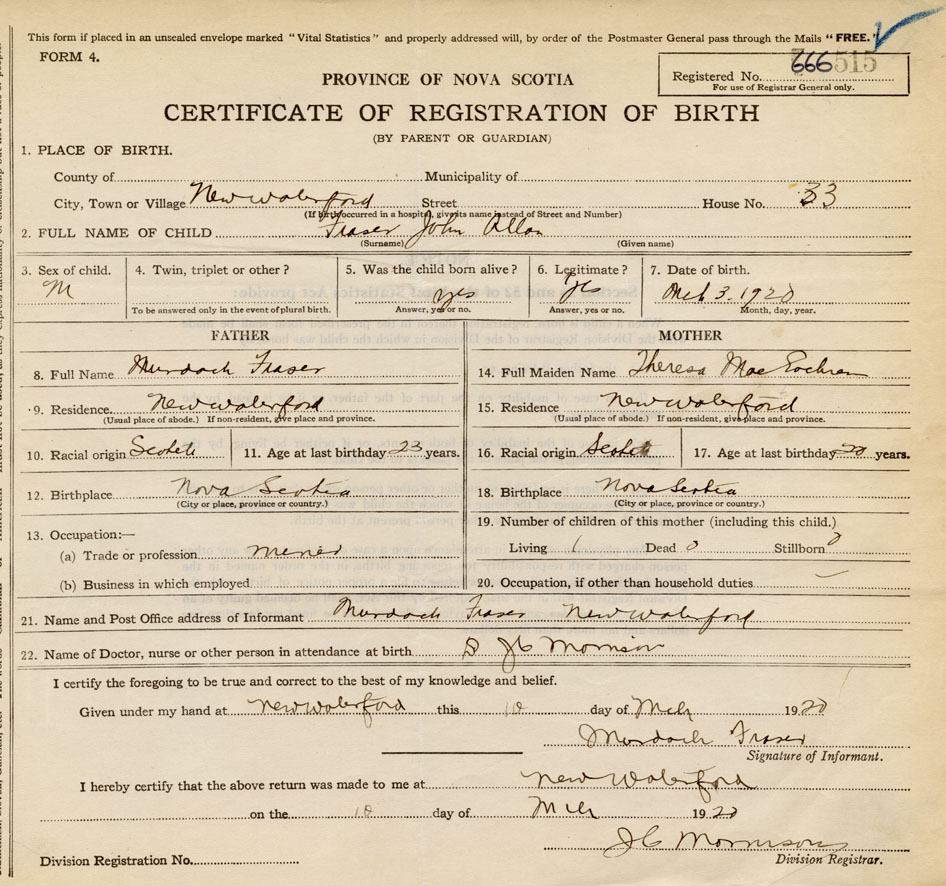 This form if placed in an unsealed envelope marked "Vital Statistics" and properly addressed will, by order of the Postmaster General pass through the Mails "FREE."
FORM 4.
PROVINCE OF NOVA SCOTIA
Registered No. 666515
For use of Registrar General only.
CERTIFICATE OF REGISTRATION OF BIRTH
(BY PARENT OR GUARDIAN)
1. PLACE OF BIRTH.
County of Municipality of
City, Town or Village New Waterford Street House No. 33
(If birth occurred in a hospital, give its name instead of Street and Number)
2. FULL NAME OF CHILD Fraser John Allan
(Surname) (Given name)
3. Sex of child. 4. Twin, triplet or other? 5. Was the child born alive? 6. Legitimate? 7. Date of birth.
M yes yes Mch 3. 1920
To be answered only in the event of plural birth. Answer, yes or no. Answer, yes or no. Month, day, year.
FATHER MOTHER
8. Full Name Murdoch Fraser 14. Full Maiden Name Theresa Mac
9. Residence New Waterford 15. Residence New Waterford
(Usual place of abode.) If non-resident, give place and province. (Usual place of abode.) If non-resident, give place and province.
10. Racial origin Scotch 11. Age at last birthday 23 years. 16. Racial origin Scotch 17. Age at last birthday 20 years.
12. Birthplace Nova Scotia 18. Birthplace Nova Scotia
(City or place, province or country.) (City or place, province or country.)
19. Number of children of this mother (including this child.)
13. Occupation:—
Living 1 Dead 0 Stillborn 0
(a) Trade or profession miner
(b) Business in which employed 20. Occupation, if other than household duties —
21. Name and Post Office address of Informant Murdoch Fraser New Waterford
22. Name of Doctor, nurse or other person in attendance at birth D JC Morrison
I certify the foregoing to be true and correct to the best of my knowledge and belief.
Given under my hand at New Waterford this 10 day of Mch 1920
Murdoch Fraser
Signature of Informant.
I hereby certify that the above return was made to me at New Waterford
on the 10 day of Mch 1920
JC Morrison
Division Registration No. Division Registrar.